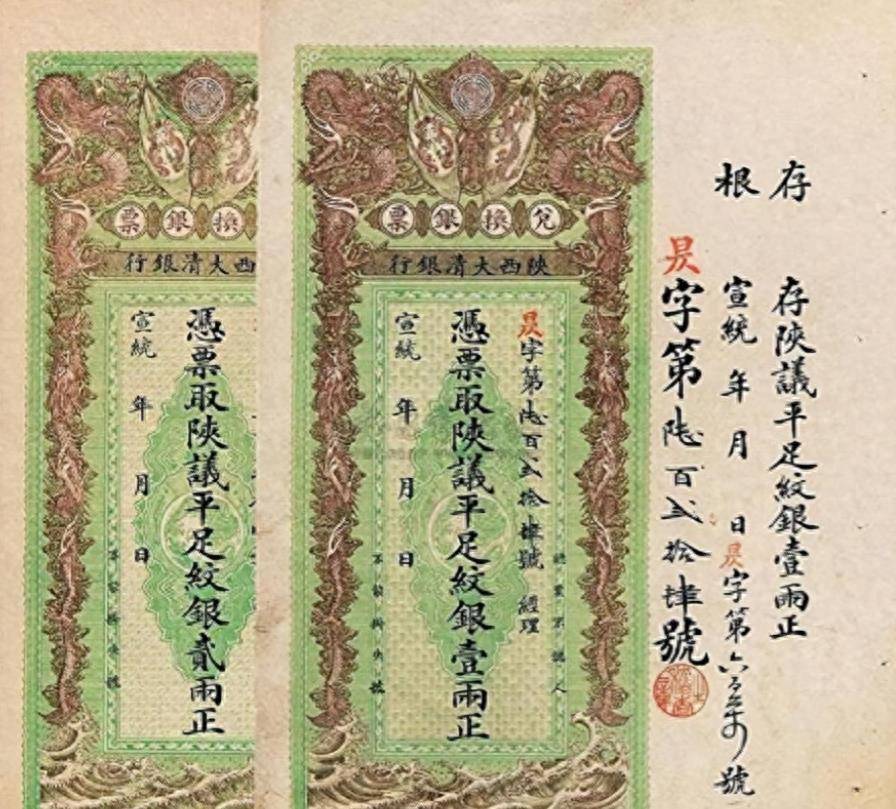 票銀換
行銀清大西
憑票取陝議平足紋銀貳兩正
宣統 年 月 日
兌換銀票
陝西大清銀行
昃字第陸百貳拾肆號 經理
憑票取陝議平足紋銀壹兩正
宣統 年 月 日
認票不認人
存根
存陝議平足紋銀壹兩正
宣統 年 月 日 昃字第 號
昃字第陸百貳拾肆號